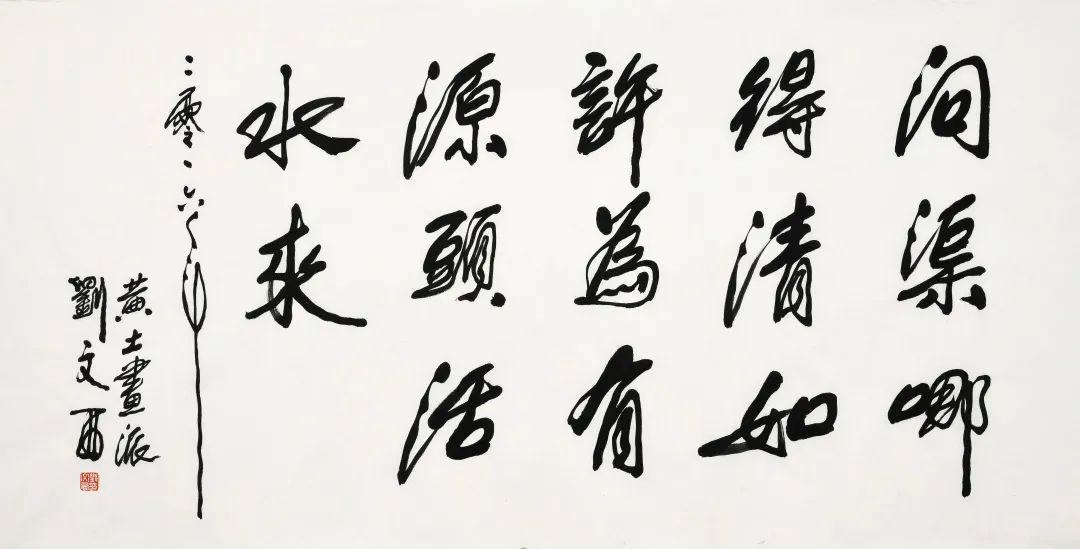 问渠哪
得清如
許為有
源頭活
水來
二零一六年
黃土畫派
劉文西